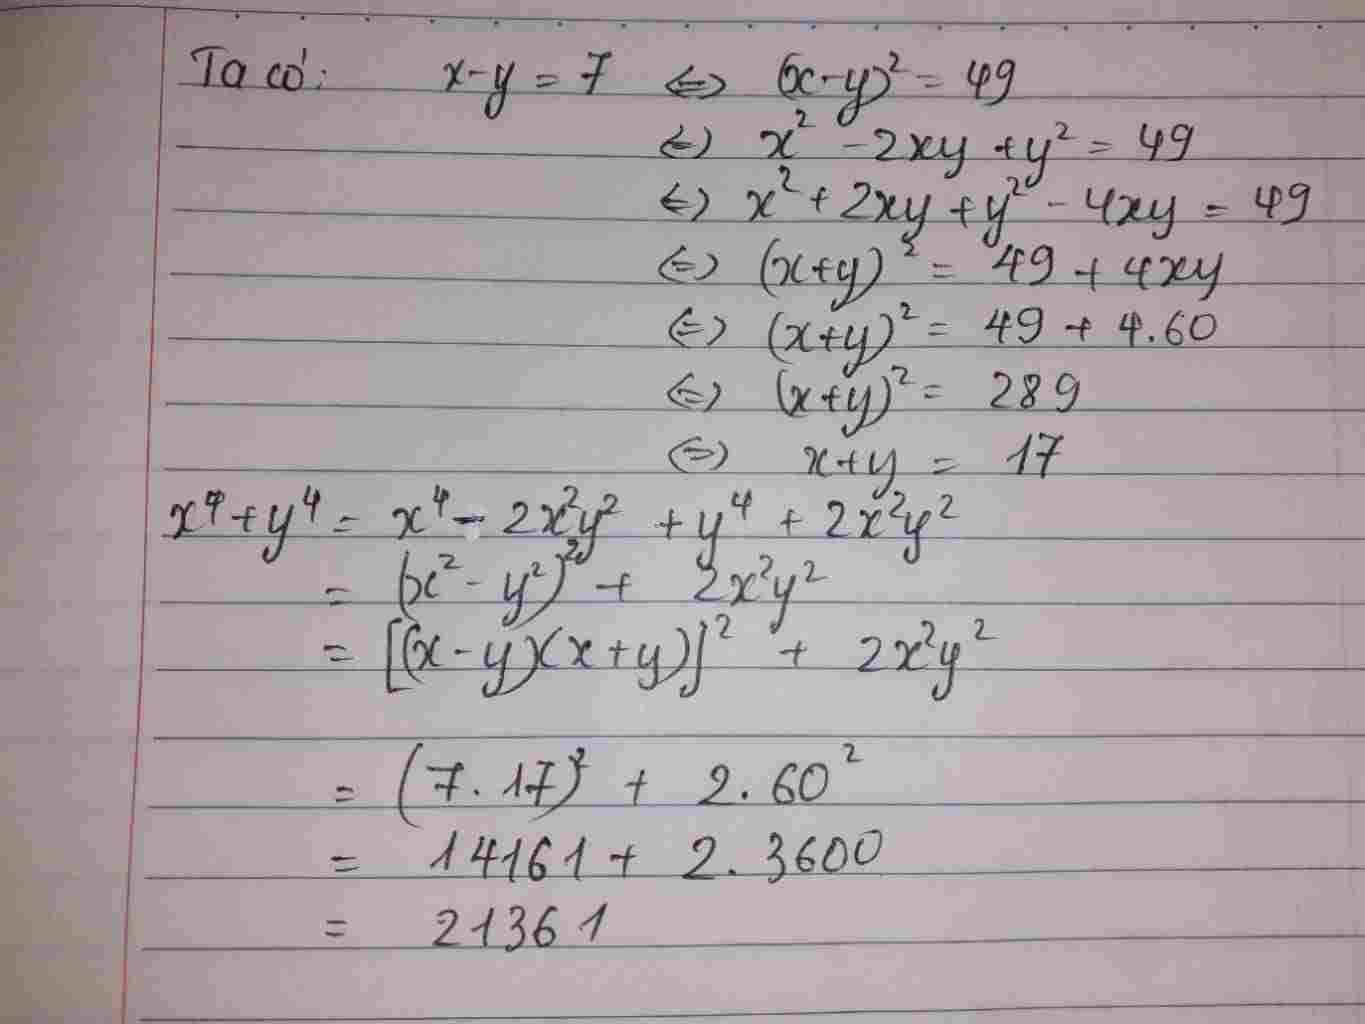 Ta có: x-y = 7 <=> (x-y)² = 49
<=> x² - 2xy + y² = 49
<=> x² + 2xy + y² - 4xy = 49
<=> (x+y)² = 49 + 4xy
<=> (x+y)² = 49 + 4.60
<=> (x+y)² = 289
<=> x+y = 17
x⁴ + y⁴ = x⁴ - 2x²y² + y⁴ + 2x²y²
= (x² - y²)² + 2x²y²
= [(x-y)(x+y)]² + 2x²y²
= (7.17)² + 2.60²
= 14161 + 2.3600
= 21361